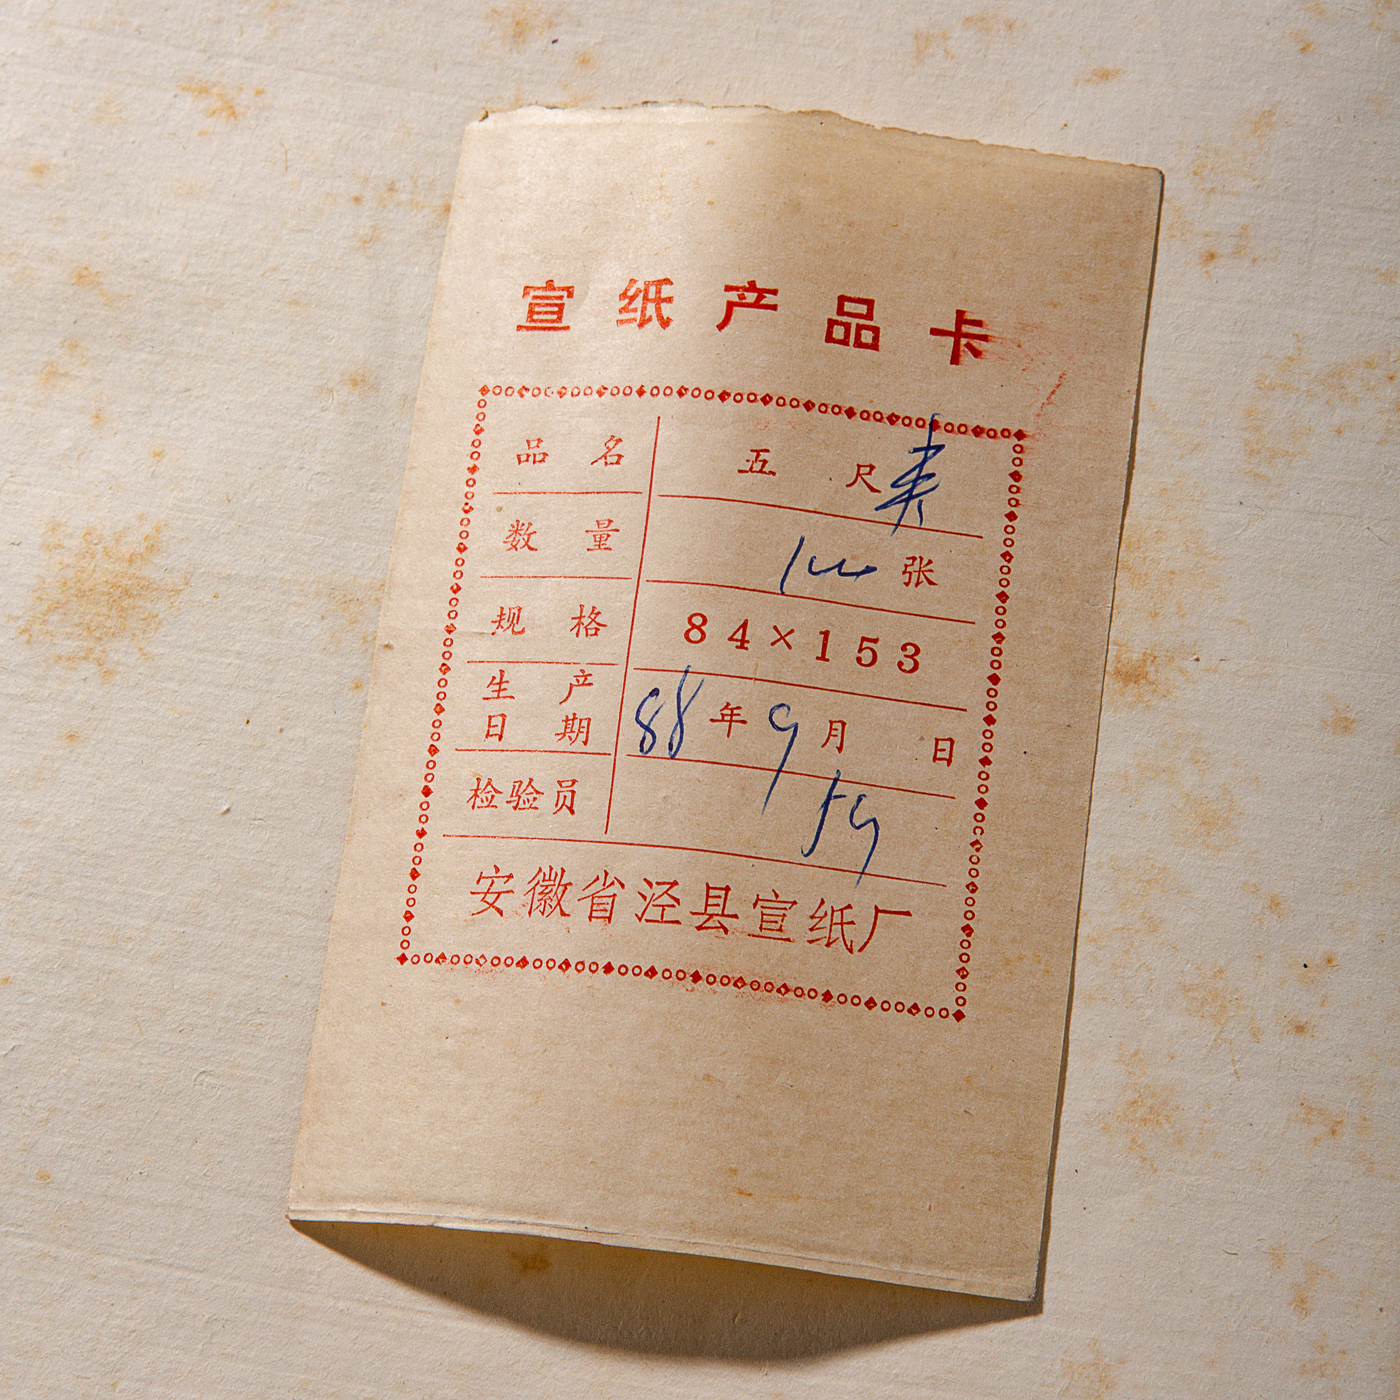 宣纸产品卡
品名 五尺夹
数量 100张
规格 84×153
生产日期 88年9月 日
检验员 59
安徽省泾县宣纸厂